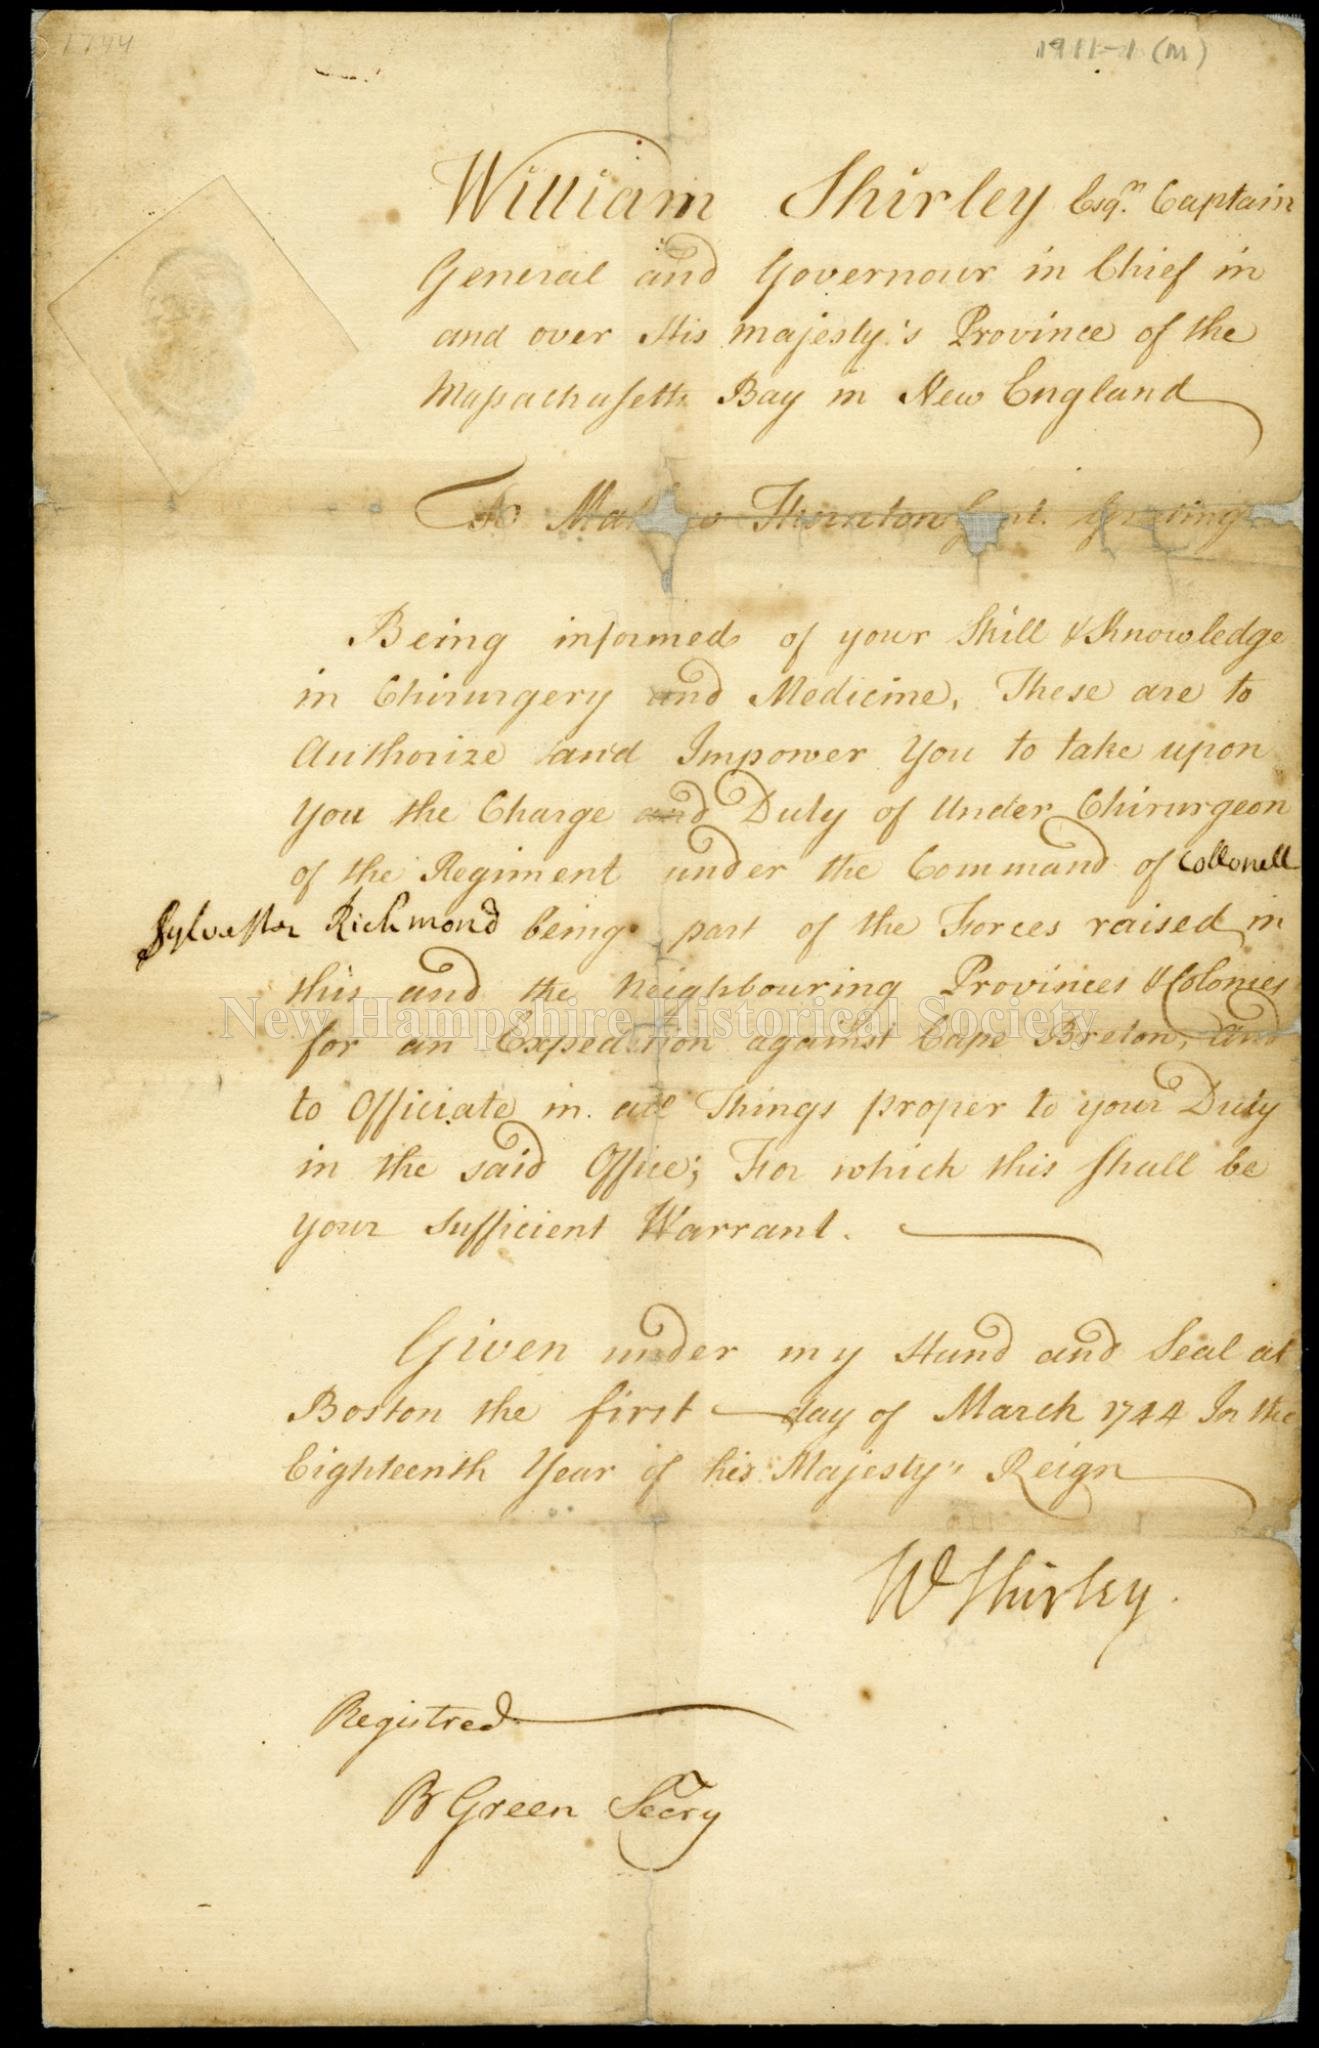 1744
1911-1 (M)
William Shirley Esqr. Captain
General and Governour in Chief in
and over His Majesty's Province of the
Massachusetts Bay in New England
To Mat Thornton Gent. Greeting
Being informed of your Skill & Knowledge
in Chirurgery and Medicine, These are to
Authorize and Impower You to take upon
You the Charge and Duty of Under Chirurgeon
of the Regiment under the Command of Collonell
Sylvester Richmond being part of the Forces raised in
this and the Neighbouring Provinces & Colonies
for an Expedition against Cape Breton, and
to Officiate in all Things proper to your Duty
in the said Office; For which this shall be
your Sufficient Warrant.
Given under my Hand and Seal at
Boston the first day of March 1744 In the
Eighteenth Year of his Majesty's Reign
W Shirley.
Registred
Pr Green Secry
New Hampshire Historical Society